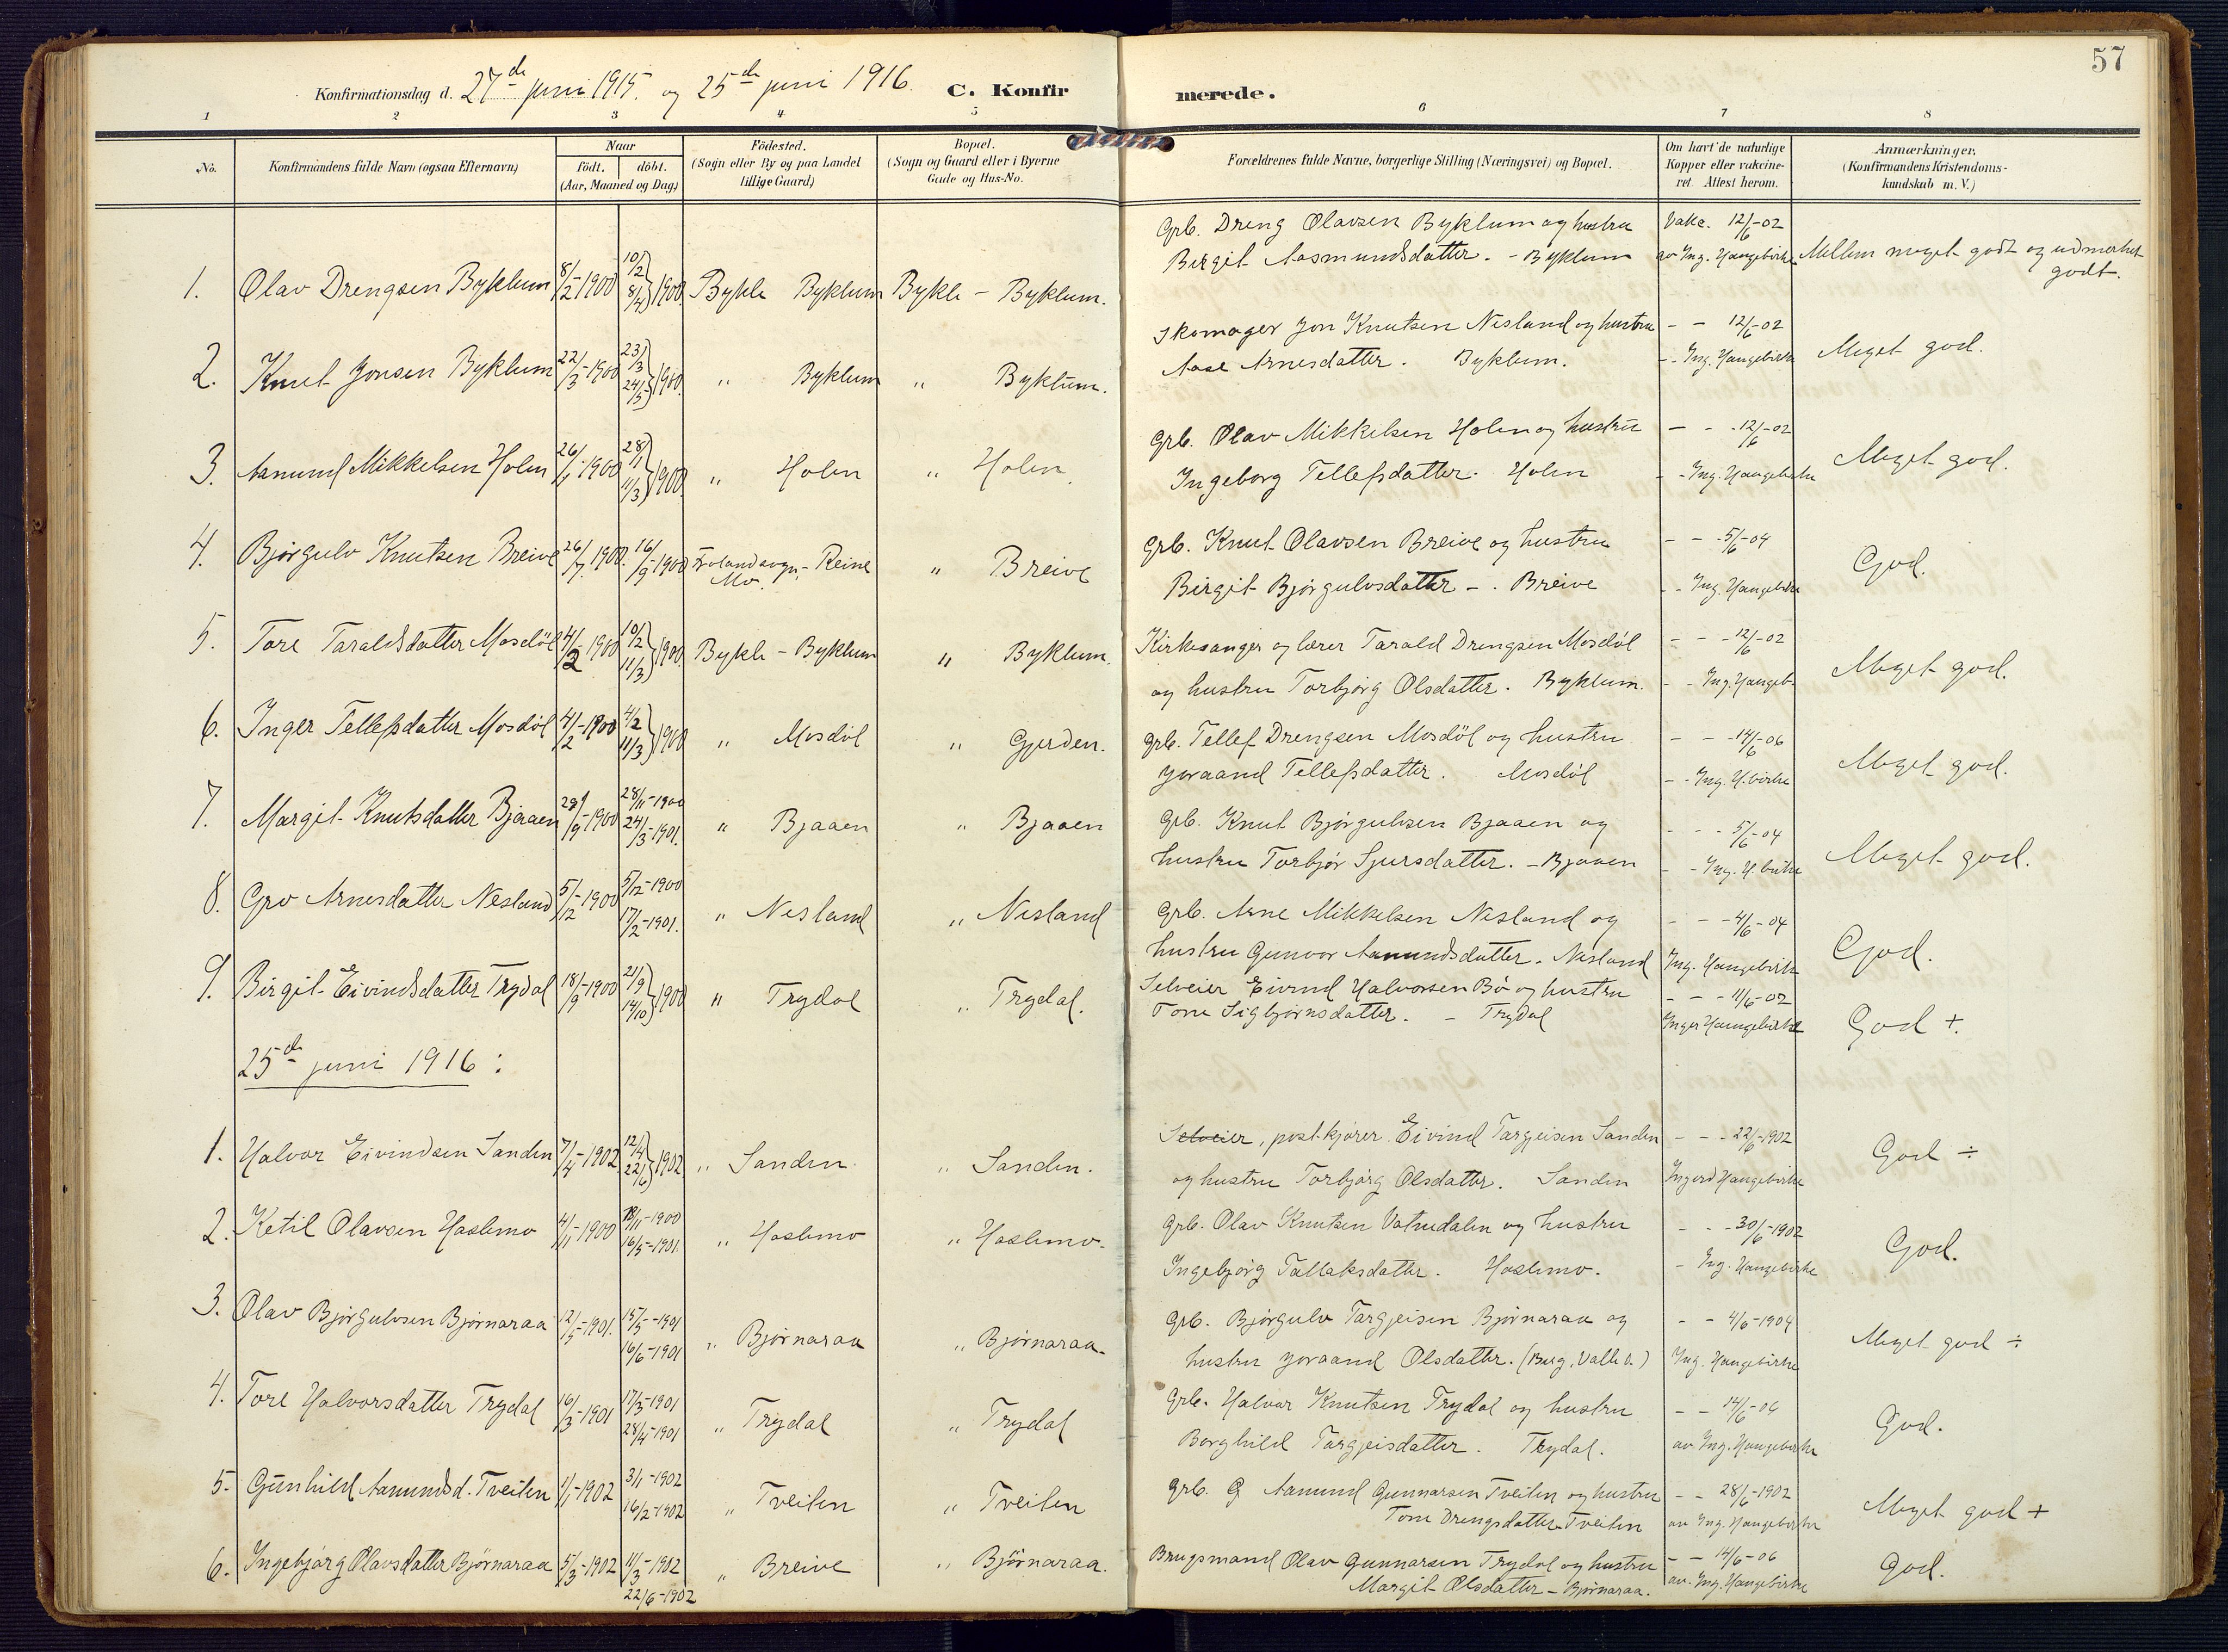 57
Konfirmationsdag d. 27de juni 1915. og 25de juni 1916. C. Konfirmerede.
1 2 3 4 5 6 7 8
No.
Konfirmandens fulde Navn (ogsaa Efternavn)
Naar
födt. döbt.
(Aar, Maaned og Dag)
Födested.
(Sogn eller By og paa Landet
tillige Gaard)
Bopæl.
(Sogn og Gaard eller i Byerne
Gade og Hus-No.
Forældrenes fulde Navne, borgerlige Stilling (Næringsvei) og Bopæl.
Om havt de naturlige
Kopper eller vakcine-
ret. Attest herom.
Anmærkninger,
(Konfirmandens Kristendoms-
kundskab m. V.)
1. Olav Drengsen Byklum 8/2-1900 10/2 8/4} 1900 Bykle Byklum Bykle - Byklum.
Grb. Dreng Olavsen Byklum og hustru Vakc. 12/6-02
Birgit Aasmundsdatter. - Byklum av Ing. Haugebirke Mellem meget godt og udmerket
godt.
2. Knut Jonsen Byklum 22/3-1900 23/3 24/5} 1900. " Byklum " Byklum.
Skomager Jon Knutsen Nesland og hustru - - 12/6-02
Aase Arnesdatter. Byklum. - - Ing. Haugebirke Meget god.
3. Aanund Mikkelsen Holen 26/1-1900 28/1 11/3} 1900. " Holen " Holen.
Grb. Olav Mikkelsen Holen og hustru - - - 12/6-02
Ingeborg Tellefsdatter. Holen - - Ing. Haugebirke Meget god.
4. Bjørgulv Knutsen Breive 26/7 1900. 16/9-1900 Frolandsogn - Reine " Breive
Mo.
Grb. Knut Olavsen Breive og hustru - - - 5/6-04
Birgit Bjørgulvsdatter -. Breive - - Ing. Haugebirke God.
5. Tore Taraldsdatter Mosdöl 4/2-1900 10/2 11/3} 1900 Bykle - Byklum " Byklum.
Kirkesanger og lærer Tarald Drengsen Mosdöl - - - 12/6-02
og hustru Torbjørg Olsdatter. Byklum. - - Ing. Haugeb- Meget god.
6. Inger Tellefsdatter Mosdöl 4/2-1900 4/2 11/3} 1900 " Mosdöl " Gjerden.
Grb. Tellef Drengsen Mosdöl og hustru - - - 14/6-06
Joraand Tellefsdatter. Mosdöl - - Ing. H.birke Meget god.
7. Margit Knutsdatter Bjaaen 29/9-1900 28/11-1900 " Bjaaen " Bjaaen
24/3-1901.
Grb. Knut Bjørgulvsen Bjaaen og - - - 5/6-04
hustru Torbjør Sjursdatter. - Bjaaen - - Ing. H.birke Meget god.
8. Gro Arnesdatter Nesland 5/12-1900 5/12-1900 " Nesland " Nesland
17/2-1901.
Grb. Arne Mikkelsen Nesland og - - - 4/6-04
hustru Gunvor Aanundsdatter. Nesland Ing. Haugebirke God.
9. Birgit Eivindsdatter Trydal 18/9-1900 21/9 14/10} 1900 " Trydal " Trydal.
Selveier Eivind Halvorsen Bö og hustru - - - 11/6-02
Tone Sigbjørnsdatter. - Trydal Inger Haugebirke God +.
25de juni 1916:
1. Halvor Eivindsen Sanden 7/4-1902 12/4 22/6} 1902 " Sanden. " Sanden.
Selveier, postkjører Eivind Targjeisen Sanden - - - 22/6-1902
og hustru Torbjørg Olsdatter. Sanden Ingerd Haugebirke God ÷
2. Ketil Olavsen Hoslemo 4/11-1900 18/11-1900 " Hoslemo " Hoslemo.
16/5-1901.
Grb. Olav Knutsen Vatnedalen og hustru - - - 30/6-1902
Ingebjørg Tallaksdatter. Hoslemo. - Ing. Haugebirke God.
3. Olav Bjørgulvsen Bjørnaraa 12/5-1901. 15/5-1901 " Bjørnaraa " Bjørnaraa.
16/6-1901
Grb. Bjørgulv Targjeisen Bjørnaraa og - - 4/6-1904
hustru Joraand Olsdatter. (Berg, Valle s.) Ing. Haugebirke Meget god ÷
4. Tore Halvorsdatter Trydal 16/3-1901 17/3-1901 " Trydal " Trydal
28/4-1901
Grb. Halvor Knutsen Trydal og hustru - - 14/6-06
Borghild Targjeisdatter. Trydal. av Ing. Haugebirke God.
5. Gunhild Aanundsd. Tveiten 1/1-1902 3/1-1902 " Tveiten " Tveiten
16/2-1902
Grb. G Aanund Gunnarsen Tveiten og hustru - - 28/6-1902
Tone Drengsdatter Tveiten av Ing. Haugebirke Meget god +
6. Ingebjørg Olavsdatter Björnaraa 5/3-1902 11/3-1902 " Breive " Björnaraa.
22/6-1902
Brugsmand Olav Gunnarsen Trydal og hustru - - 14/6-06
Margit Olsdatter - Bjørnaraa. av. Ing. Haugebirke God.